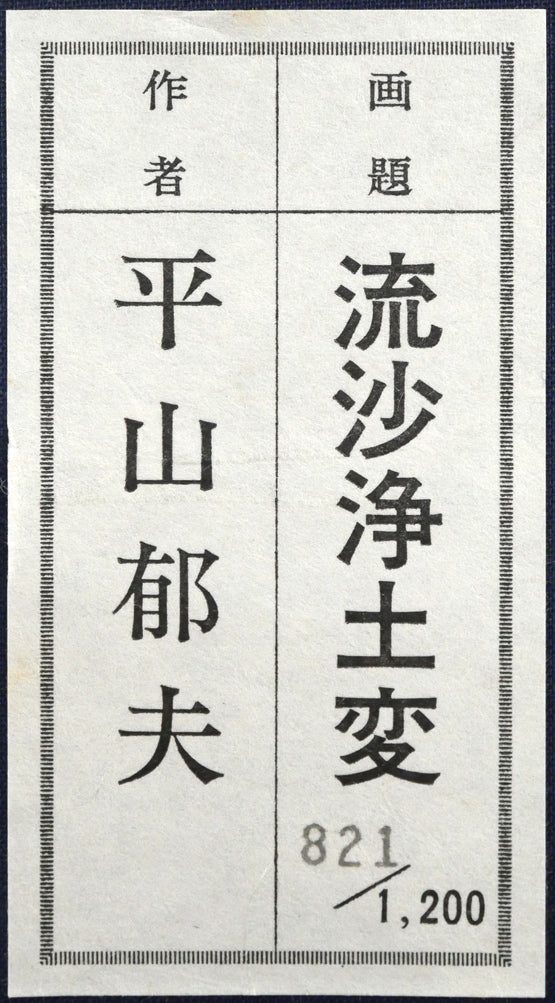 画題
流沙浄土変
821/1,200
作者
平山郁夫